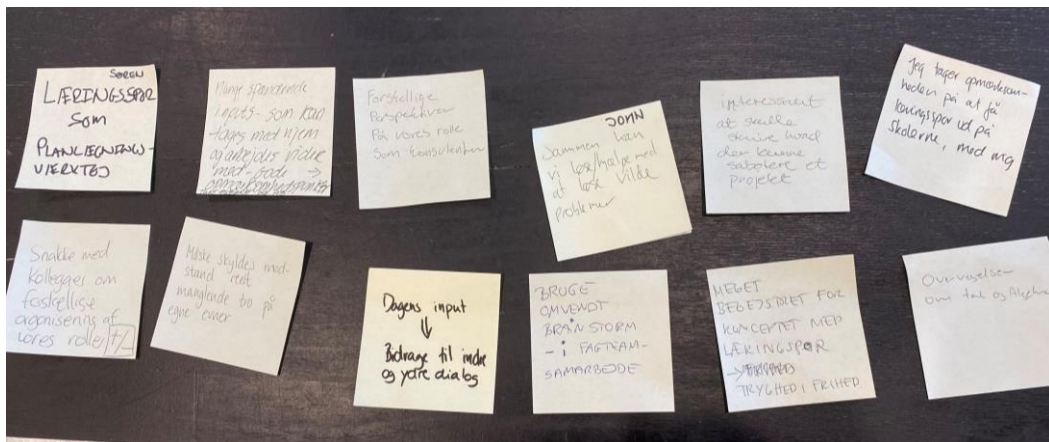 SØREN
LÆRINGSSPOR
SOM
PLANLÆGNINGS-
VÆRKTØJ
Mange spændende
inputs - som kan
tages med hjem
og arbejdes videre
med - gode →
opmærksomhedspunkter
Forskellige
Perspektiver
På vores rolle
som konsulenter
JOHN
Sammen kan
vi løse/hjælpe med
at løse vilde
problemer
interessant
at skulle
skrive hvad
der kunne
sabotere et
projekt
Jeg tager opmærksom-
heden på at få
læringsspor ud på
skolerne, med mig
Snakke med
kolleger om
forskellige
organisering af
vores roller +/-
Måske skyldes mod-
stand reelt
manglende tro på
egne evner
Dagens input
↓
Bidrage til indre
og ydre dialog
BRUGE
OMVENDT
BRAINSTORM
- i FAGTEAM-
SAMARBEJDE
MEGET
BEGEJSTRET FOR
KONCEPTET MED
LÆRINGSPOR
→
TRYGHED I FRIHED
Overvejelser
om tal og Algebra